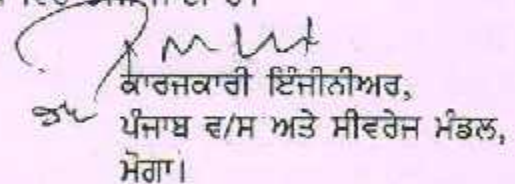 ਕਾਰਜਕਾਰੀ ਇੰਜੀਨੀਅਰ,
ਪੰਜਾਬ ਵ/ਸ ਅਤੇ ਸੀਵਰੇਜ ਮੰਡਲ,
ਮੋਗਾ।